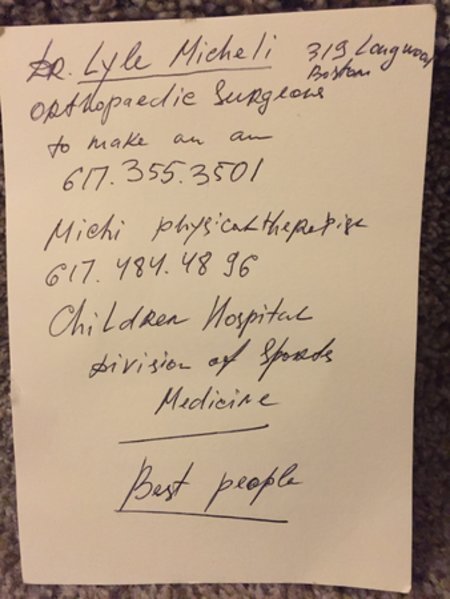 DR. Lyle Micheli
319 Longwood
Boston
ORthopaedic Surgeons
to make an an
617.355.3501
Michi physicaltherapist
617.484.48 96
ChiLdRen Hospital
Division of Sports
Medicine
Best people